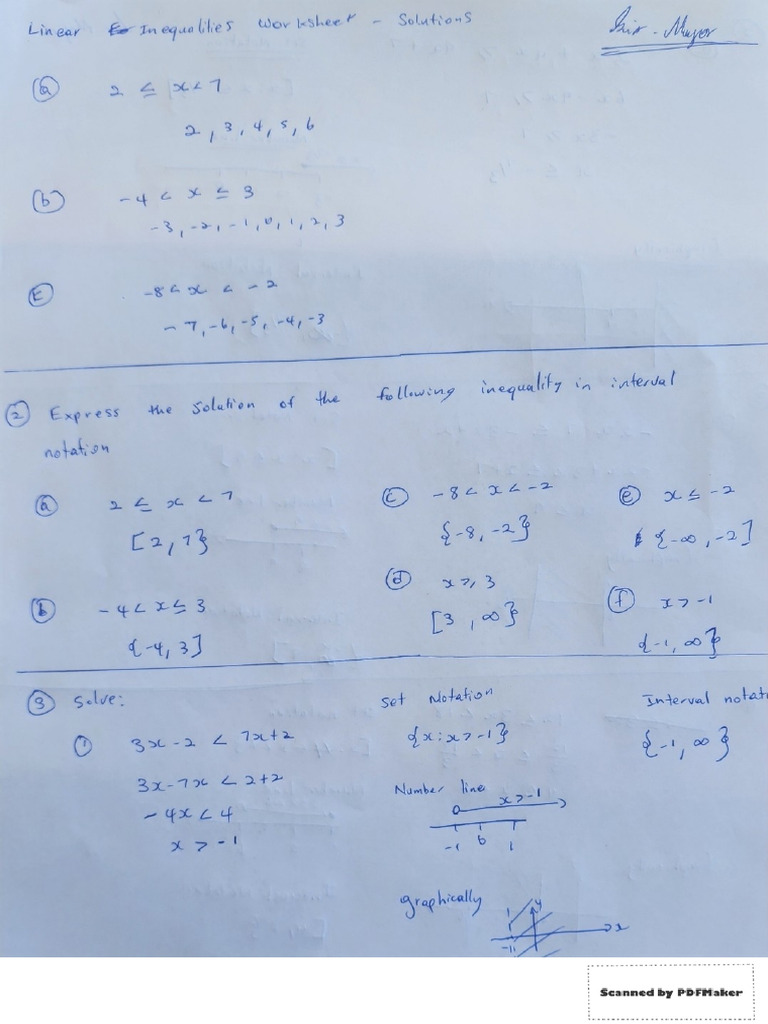 Linear Inequalities Worksheet - Solutions
Sir - Mayor
(a) 2 ≤ x < 7
2, 3, 4, 5, 6
(b) -4 < x ≤ 3
-3, -2, -1, 0, 1, 2, 3
(c) -8 < x < -2
-7, -6, -5, -4, -3
(2) Express the solution of the following inequality in interval
notation
(a) 2 ≤ x < 7
[2, 7}
(b) -4 < x ≤ 3
{-4, 3]
(c) -8 < x < -2
{-8, -2}
(d) x ≥ 3
[3, ∞}
(e) x ≤ -2
{-∞, -2]
(f) x > -1
{-1, ∞}
(3) Solve:
(1) 3x - 2 < 7x + 2
3x - 7x < 2 + 2
-4x < 4
x > -1
Set Notation
{x : x > -1}
Number line
x > -1
-1 0 1
graphically
y
x
1
-1
Interval notat
{-1, ∞}
Scanned by PDFMaker